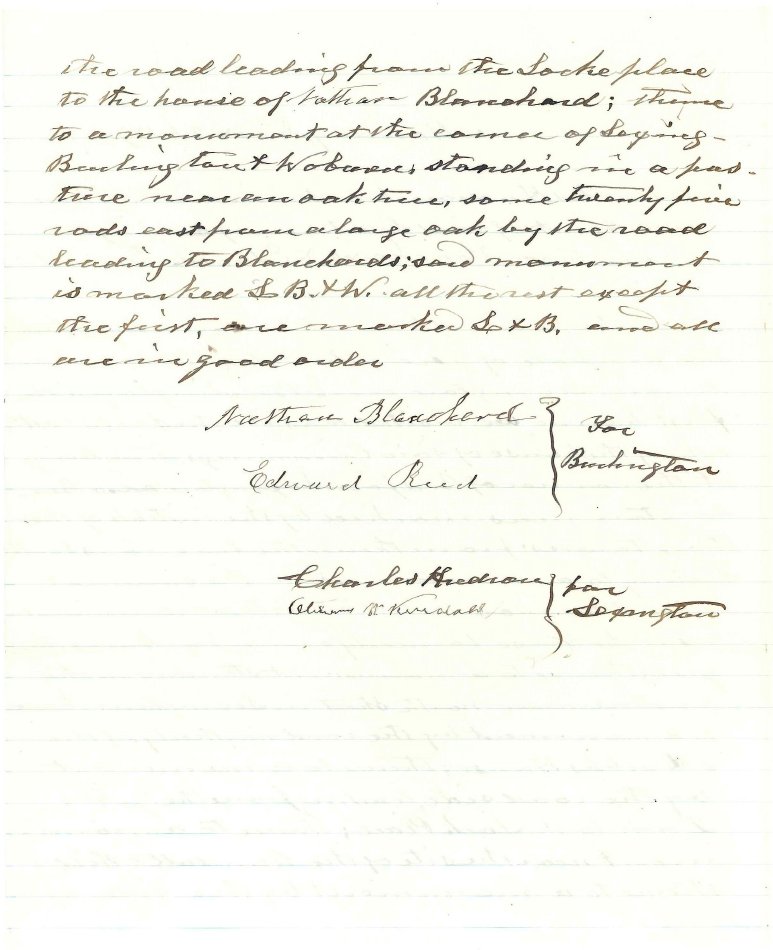 the road leading from the Locke place
to the house of Nathan Blanchard; thence
to a monument at the corner of Lexing-
Burlington & Woburn, standing in a pas-
ture near an oak tree, some twenty five
rods east from a large oak by the road
leading to Blanchards; said monument
is marked L B. & W. all the rest except
the first, are marked L & B. and all
are in good order
Nathan Blanchard
For
Burlington
Edward Reed
Charles Hudson
for
Lexington
W Kendall